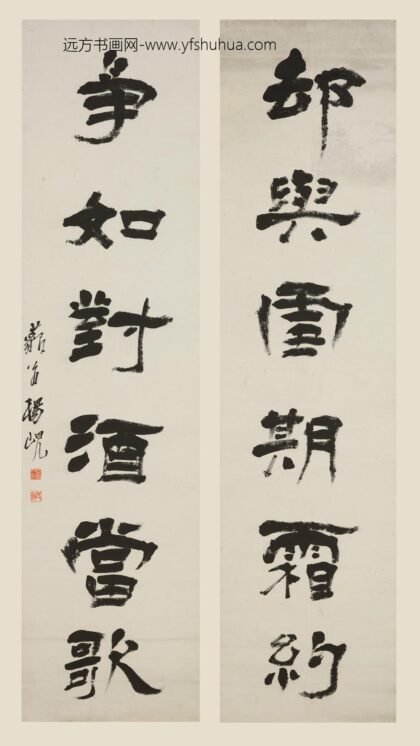 远方书画网-www.yfshuhua.com
却與雪期霜約
争如對酒當歌
藐翁楊峴